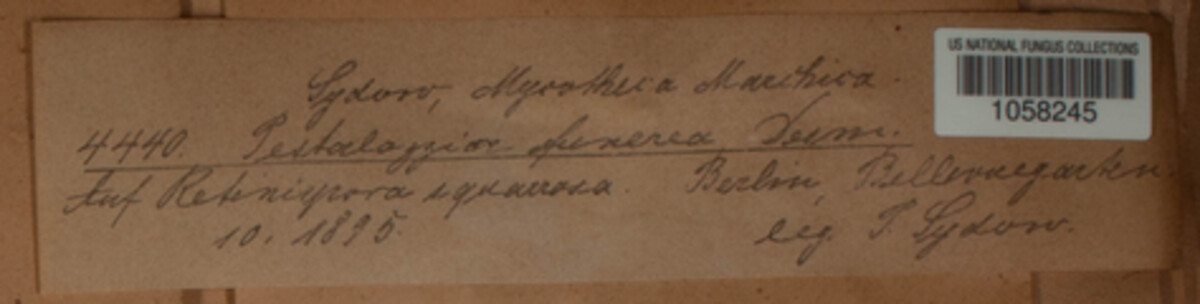 Sydow, Mycotheca Marchica.
4440. Pestalozzia funerea Desm.
Auf Retinispora squarrosa. Berlin, Bellevuegarten.
10. 1895. leg. P. Sydow.
US NATIONAL FUNGUS COLLECTIONS
1058245